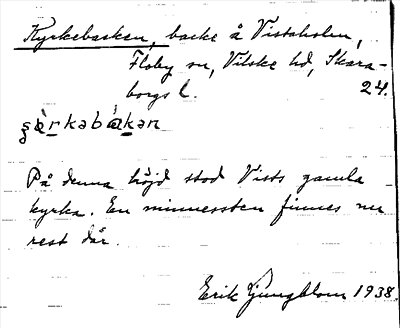 Kyrkebacken, backe å Vistaholm,
Floby sn, Vilske hd, Skara-
borgs l. 24.
På denna höjd stod Vists gamla
kyrka. En minnessten finnes nu
rest där.
Erik Ljungblom 1938.